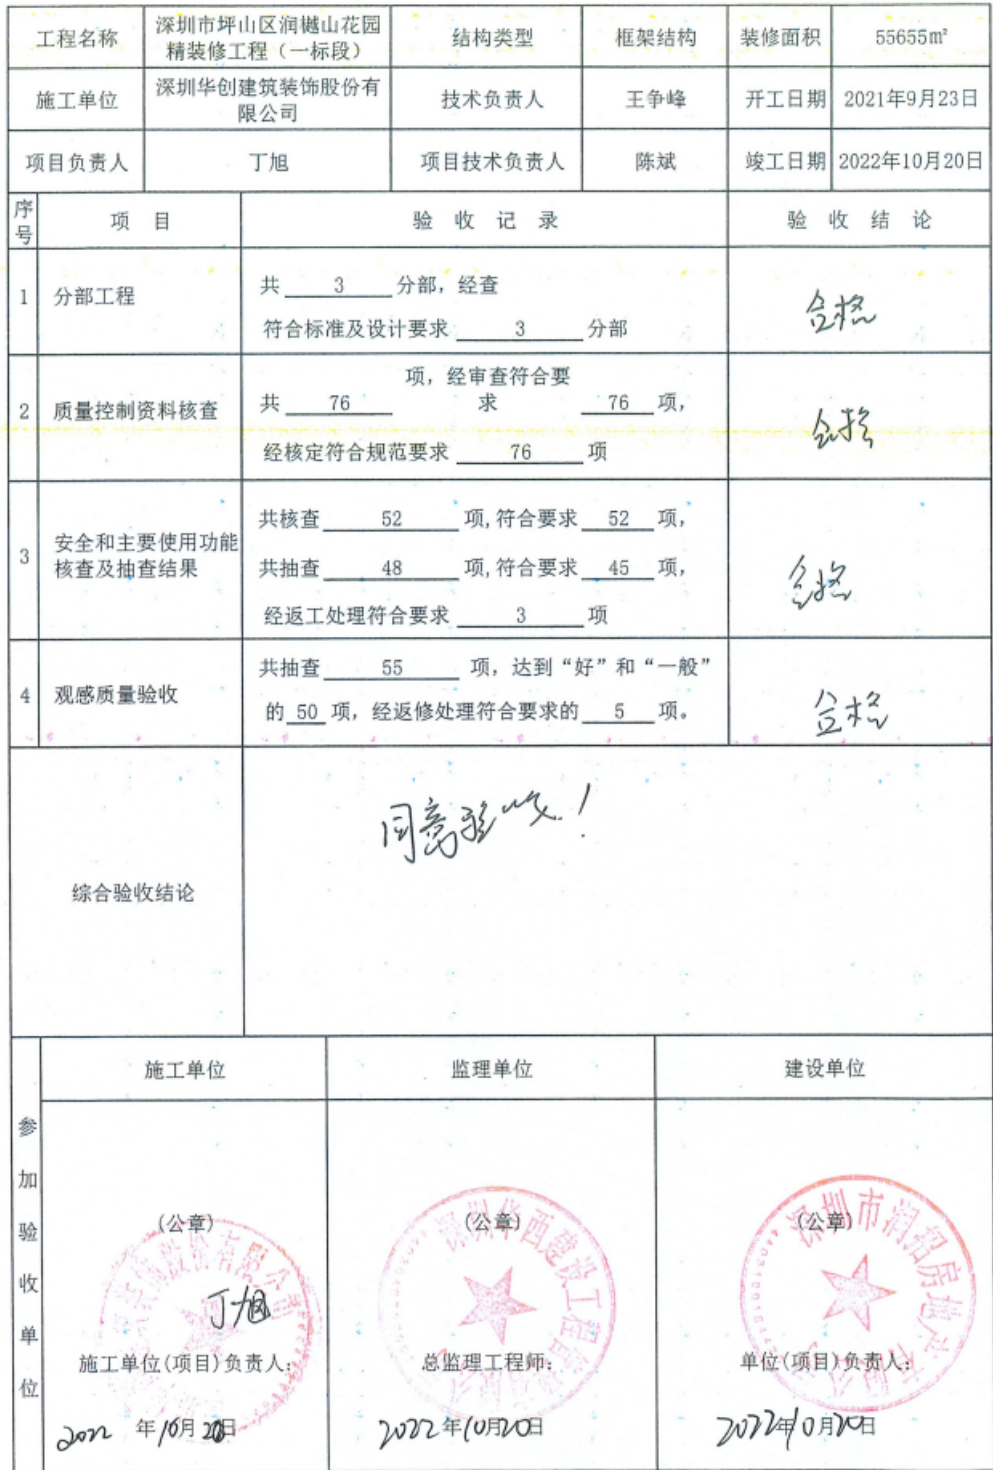 工程名称
深圳市坪山区润樾山花园
精装修工程（一标段）
结构类型
框架结构
装修面积
55655㎡
施工单位
深圳华创建筑装饰股份有
限公司
技术负责人
王争峰
开工日期
2021年9月23日
项目负责人
丁旭
项目技术负责人
陈斌
竣工日期
2022年10月20日
序
号
项 目
验 收 记 录
验 收 结 论
1
分部工程
共 3 分部，经查
符合标准及设计要求 3 分部
合格
2
质量控制资料核查
项，经审查符合要
共 76 求 76 项，
经核定符合规范要求 76 项
合格
3
安全和主要使用功能
核查及抽查结果
共核查 52 项,符合要求 52 项，
共抽查 48 项,符合要求 45 项，
经返工处理符合要求 3 项
合格
4
观感质量验收
共抽查 55 项，达到“好”和“一般”
的 50 项，经返修处理符合要求的 5 项。
合格
综合验收结论
同意验收！
参加验收单位
施工单位
监理单位
建设单位
(公章)
丁旭
施工单位(项目)负责人：
2022 年10月20日
(公章)
深圳华西建设工程
总监理工程师：
2022年10月20日
(公章)
深圳市润招房地产有限公司
单位(项目)负责人：
2022年10月20日